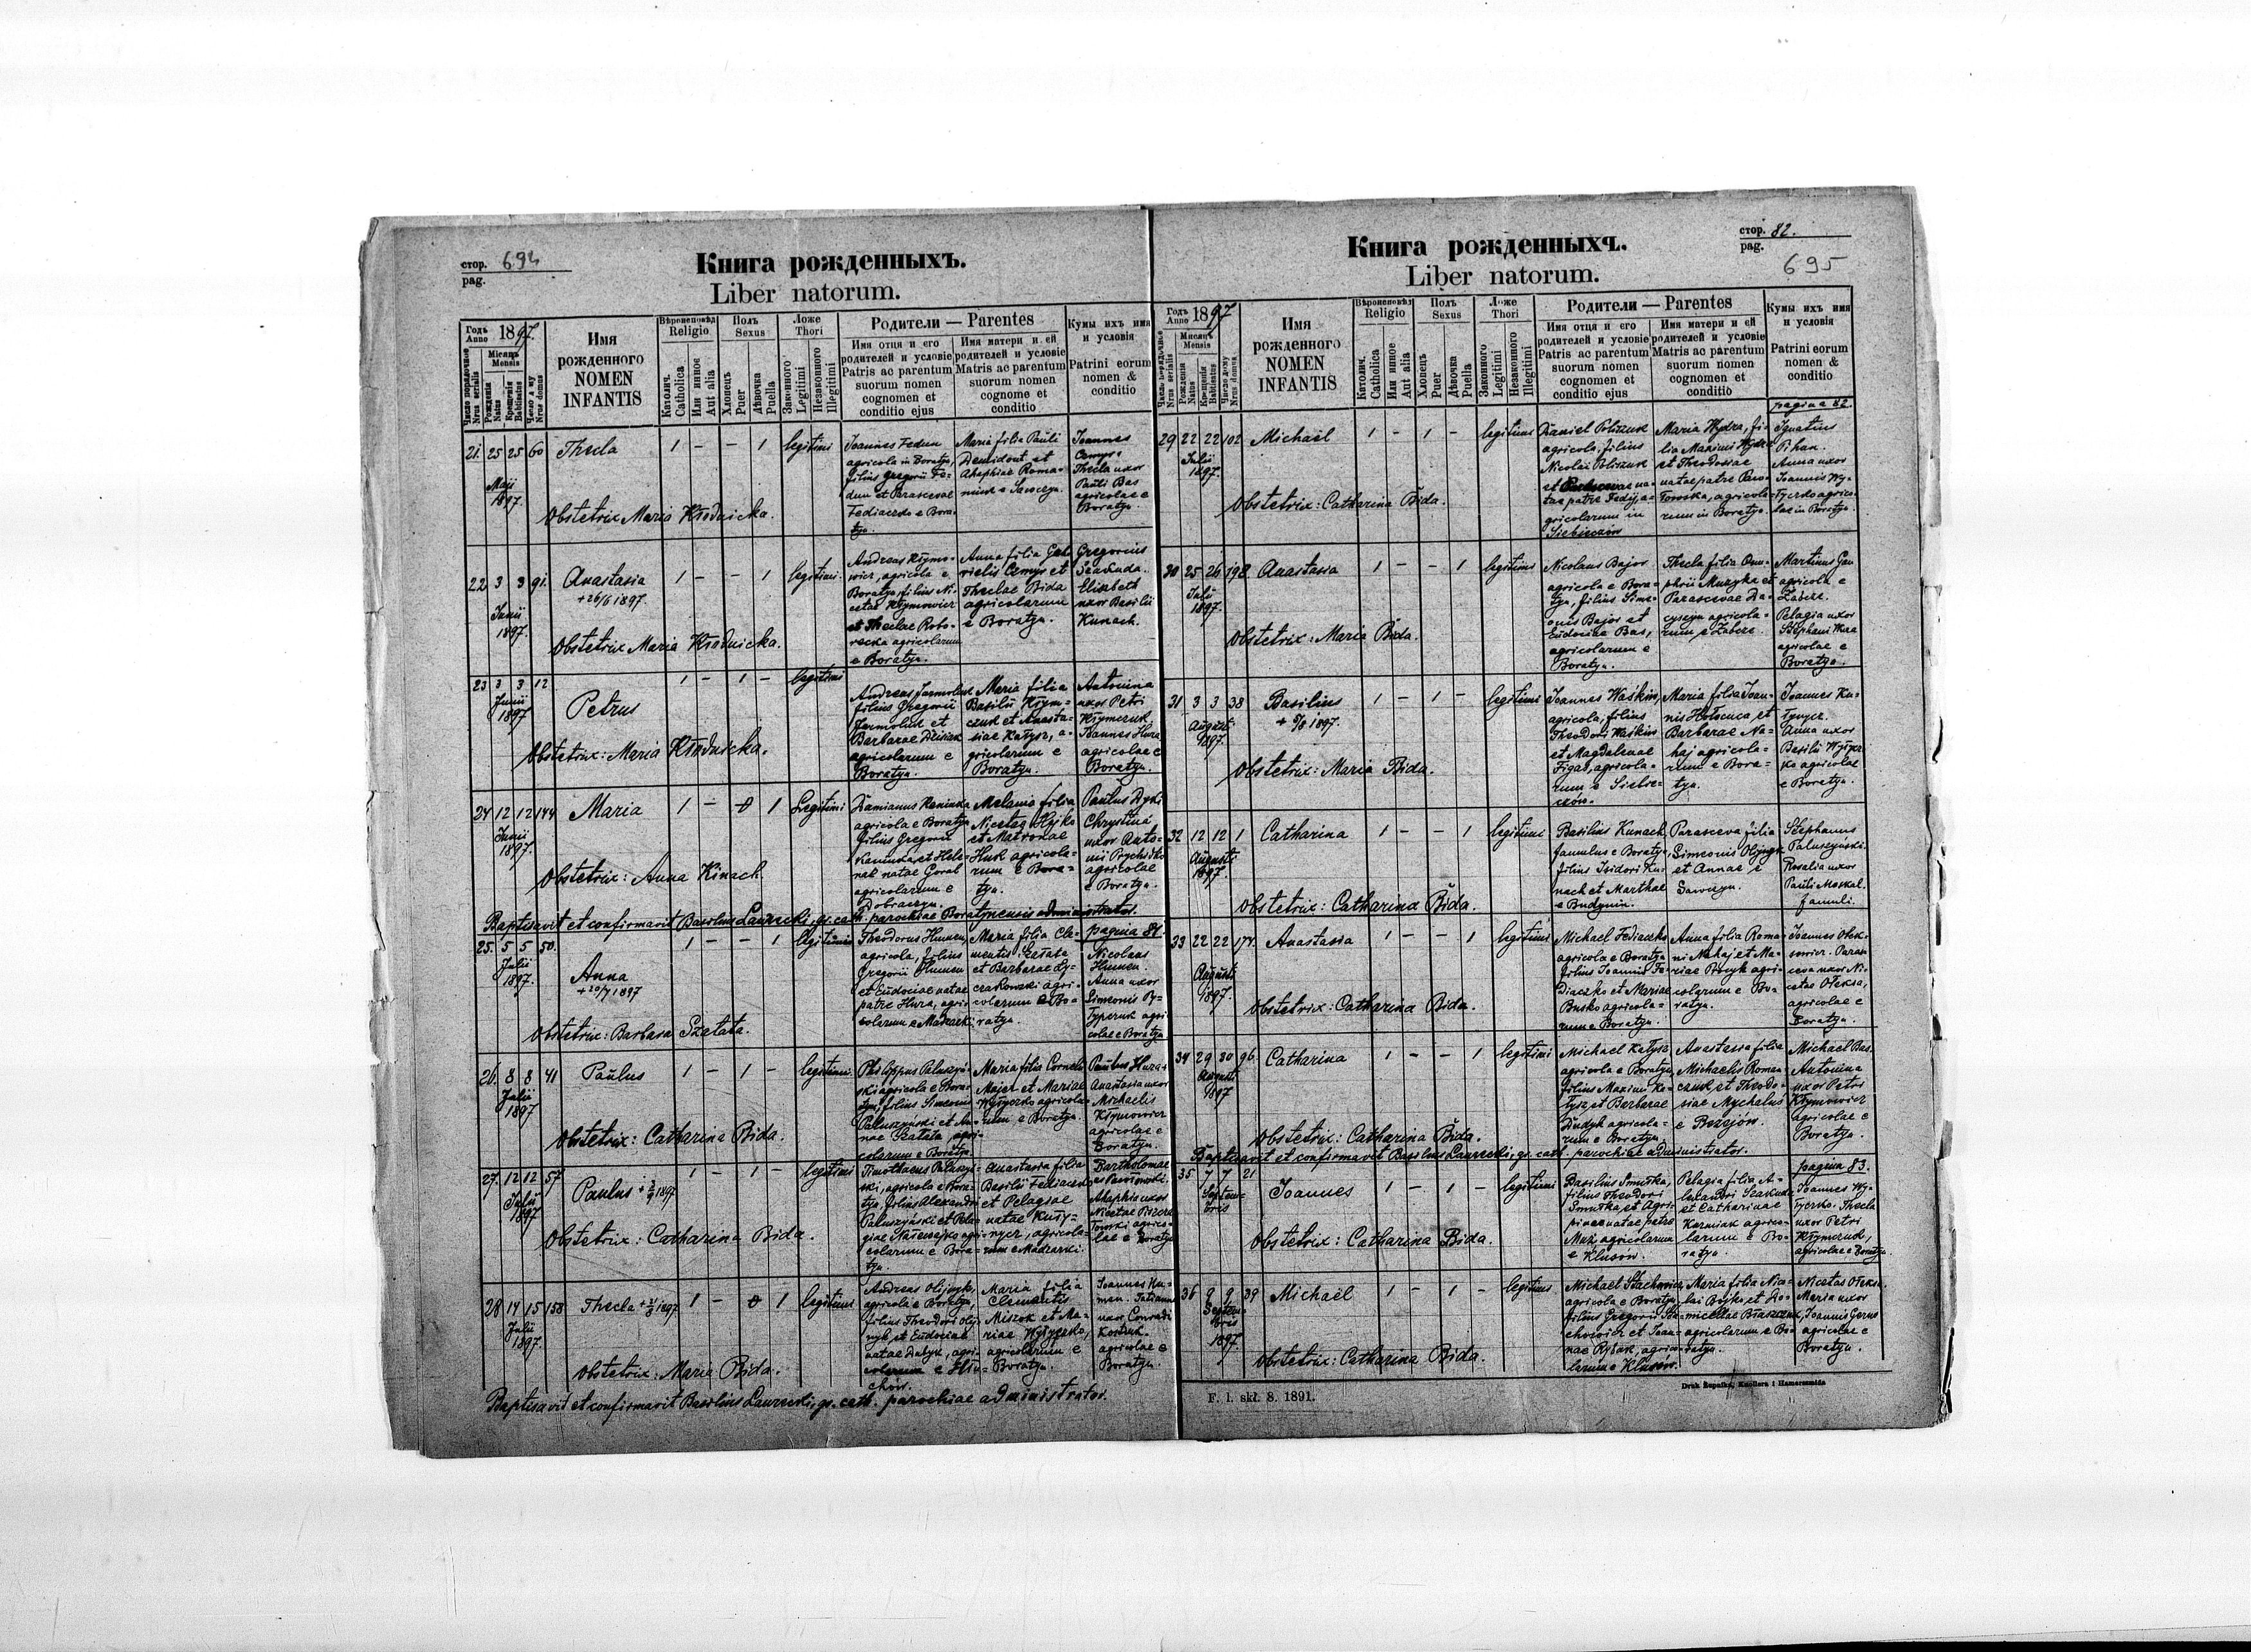 стор. 694
pag.
Книга рожденныхъ.
Liber natorum.
Годъ Anno 1897.
Місяць Mensis
Число порядочное Nrus serialis
Рожденія Natus
Крещенія Babtisatus
Число дому Nrus domus
Имя рожденного NOMEN INFANTIS
Віроисповід Religio
Католич. Catholica
Или инное Aut alia
Полъ Sexus
Хлопець Puer
Дівочка Puella
Ложе Thori
Законного Legitimi
Незаконного Illegitimi
Родители — Parentes
Имя отця и его родителей и условіе
Patris ac parentum suorum nomen cognomen et conditio ejus
Имя матери и ей родителей и условіе
Matris ac parentum suorum nomen cognome et conditio
Кумы ихъ имя и условія
Patrini eorum nomen & conditio
21. 25 25 60 Thecla 1 - - 1 legitimi
Maji 1897.
Joannes Fedun agricola in Boratyn, filius Gregorii Fedun et Parascevae Fediaczko e Boratyn.
Maria filia Pauli Demidont et Ahaphiae Romaniuk e Sawczyn.
Joannes Cempr. Thecla uxor Pauli Bas agricolae e Boratyn.
Obstetrix Maria Kłodnicka.
22 3 3 91. Anastasia 1 - - 1 legitimi.
+ 26/6 1897.
Junii 1897.
Andreas Kłymowicz, agricola e Boratyn, filius Nicetae Kłymowicz et Theclae agricolarum e Boratyn.
Anna filia Gabrielis Cempr et Theclae Bida agricolarum e Boratyn.
Gregorius Szakuda. Elisabeth uxor Basilii Kunach.
Obstetrix Maria Kłodnicka.
23 3 3 12 Petrus 1 - 1 - legitimi
Junii 1897
Andreas Jarmoluk filius Gregorii Jarmoluk et Barbarae agricolarum e Boratyn.
Maria filia Basilii Kłymczuk et Anastasiae Kałysz, agricolarum e Boratyn.
Antonina uxor Petri Kłymczuk, Joannes Hura agricolae e Boratyn.
Obstetrix: Maria Kłodnicka.
24 12 12 144 Maria 1 - 0 1 Legitimi
Junii 1897.
Damianus Kaminka agricola e Boratyn filius Gregorii Kaminka et Helenae natae Goral agricolarum e Dobraczyn.
Melania filia Nicetae Hojko et Matronae Huk agricolarum e Boratyn.
Paulus Dydi Chrystina uxor Antonii agricolae e Boratyn.
Obstetrix: Anna Kinach
Baptisavit et confirmavit Basilius Laurecki, gr. cath. parochiae Boratynensis administrator.
pagina 81.
25. 5 5 50. Anna 1 - - 1 legitimi
+ 20/7 1897
Julii 1897.
Theodorus Humen, agricola, filius Gregorii Humen et Eudociae natae patre Hura, agricolarum e Madzarki
Maria filia Clementis Szałata et Barbarae Lyczakowski agricolarum e Boratyn.
Nicolaus Humen. Anna uxor Simeonis Pyłypczuk agricolae e Boratyn
Obstetrix: Barbara Szałata.
26. 8 8 41 Paulus 1 - 1 - legitimi
Julii 1897
Philippus Paluszyński agricola e Boratyn, filius Simeonis Paluszyński et Annae Szałata, agricolarum e Boratyn
Maria filia Cornelii Majer et Mariae Wyłyczko agricolarum e Boratyn.
Paulus Hura. Anastasia uxor Michaelis Kłymowicz agricolae e Boratyn.
Obstetrix: Catharina Bida.
27. 12 12 57 Paulus 1 - 1 - legitimi
Julii 1897
Timothaeus Paluszyński, agricola e Boratyn, filius Alexandri Paluszyński et Pelagiae agricolarum e Boratyn.
Anastasia filia Basilii Fediaczko et Pelagiae natae Kułynycz, agricolarum e Madzarki.
Ahaphia uxor Nicetae agricolae e Boratyn
Obstetrix: Catharina Bida.
28 14 15 158 Thecla 1 - 0 1 legitimi
Julii 1897.
Andreas Olijnyk, agricola e Boratyn, filius Theodori Olijnyk et Eudociae natae Dutyk, agricolarum e
Maria filia Clementis Miszok et Mariae Wyłyczko, agricolarum e Boratyn.
Joannes Humen. Tatianna uxor Conradi Kostiuk. agricolae e Boratyn.
Obstetrix: Maria Bida.
Baptisavit et confirmavit Basilius Laurecki, gr. cath. parochiae administrator.
стор. 82.
pag.
695
Книга рожденныхъ.
Liber natorum.
Годъ Anno 1897
Місяць Mensis
Число порядочное Nrus serialis
Рожденія Natus
Крещенія Babtisatus
Число дому Nrus domus
Имя рожденного NOMEN INFANTIS
Віроисповід Religio
Католич. Catholica
Или инное Aut alia
Полъ Sexus
Хлопець Puer
Дівочка Puella
Ложе Thori
Законного Legitimi
Незаконного Illegitimi
Родители — Parentes
Имя отця и его родителей и условіе
Patris ac parentum suorum nomen cognomen et conditio ejus
Имя матери и ей родителей и условіе
Matris ac parentum suorum nomen cognomen et conditio
Кумы ихъ имя и условія
Patrini eorum nomen & conditio
pagina 82.
29 22 22 102 Michaël 1 - 1 - legitimi
Julii 1897.
Daniel Poliszuk agricola, filius Nicolai Poliszuk et natae patre Fedij agricolarum in Siebieczów
Maria Wydra, filia Maximi Wydra et Theodosiae natae patre agricolarum in Boratyn.
Ignatius Pihan. Anna uxor Joannis Wyłyczko agricolae in Boratyn.
Obstetrix: Catharina Bida.
30 25 26 198 Anastasia 1 - - 1 legitimi
Julii 1897.
Nicolaus Bajor agricola e Boratyn, filius Simeonis Bajor et Eudociae Bas, agricolarum e Boratyn.
Thecla filia Onuphrii Muzyka et Parascevae agricolarum e Zabcze.
Martinus agricola e Zabcze. Pelagia uxor Stephani agricolae e Boratyn.
Obstetrix: Maria Bida.
31 3 3 38 Basilius 1 - 1 - legitimi
+ 5/8 1897.
Augusti 1897.
Joannes Waśkin, agricola, filius Theodori Waśkin et Magdalenae Figas, agricolarum e Siebieczów.
Maria filia Joannis et Barbarae Nahaj agricolarum e Boratyn.
Joannes Kułynycz. Anna uxor Basilii Wyłyczko agricolae e Boratyn.
Obstetrix: Maria Bida.
32 12 12 1 Catharina 1 - - 1 legitimi
Augusti 1897.
Basilius Kunach famulus e Boratyn, filius Isidori Kunach et Marthae e Budynin.
Parasceva filia Simeonis Olijnyk et Annae e Sawczyn.
Stephanus Paluszyński. Rosalia uxor Pauli Moskal. famuli.
Obstetrix: Catharina Bida.
33 22 22 174. Anastasia 1 - - 1 legitimi
Augusti 1897.
Michael Fediaczko agricola e Boratyn filius Joannis Fediaczko et Mariae Busko agricolarum e Boratyn.
Anna filia Romani Nahaj et Mariae agricolarum e Boratyn.
Joannes Parasceva uxor Nicetae Ołeksa, agricolae e Boratyn.
Obstetrix: Catharina Bida.
34 29 30 96. Catharina 1 - - 1 legitimi
Augusti 1897
Michael Kałysz agricola e Boratyn, filius Maximi Kałysz et Barbarae Dudyk agricolarum e Boratyn.
Anastasia filia Michaelis Romanczuk et Theodosiae Mychaluś e Bożejów.
Michael Bas. Antonina uxor Petri Kłymowicz agricolae e Boratyn.
Obstetrix: Catharina Bida.
Baptisavit et confirmavit Basilius Laurecki, gr. cath. parochiae administrator.
pagina 83.
35 7 7 21 Joannes 1 - 1 - legitimi
Septembris
Basilius Smutka, filius Theodori Smutka, et Agripinae natae patre Muz, agricolarum e Klusów.
Pelagia filia Alexandri Szakuda et Catharinae Kuzniak agricolarum e Boratyn.
Joannes Wyłyczko. Thecla uxor Petri Kłymczuk, agricolae e Boratyn.
Obstetrix: Catharina Bida.
36 9 9 39 Michaël 1 - 1 - legitimi
Septembris 1897.
Michael Stachowicz agricola e Boratyn filius Gregorii Stachowicz et Joannae Rybak, agricolarum e Klusów.
Maria filia Nicolai Bojko et Domicellae Błaszczuk, agricolarum e Boratyn.
Nicetas Ołeksa. Maria uxor Joannis agricolae e Boratyn.
Obstetrix: Catharina Bida.
F. l. skł. 8. 1891.
Druk Żupałka, Knollera i Hamerszmida